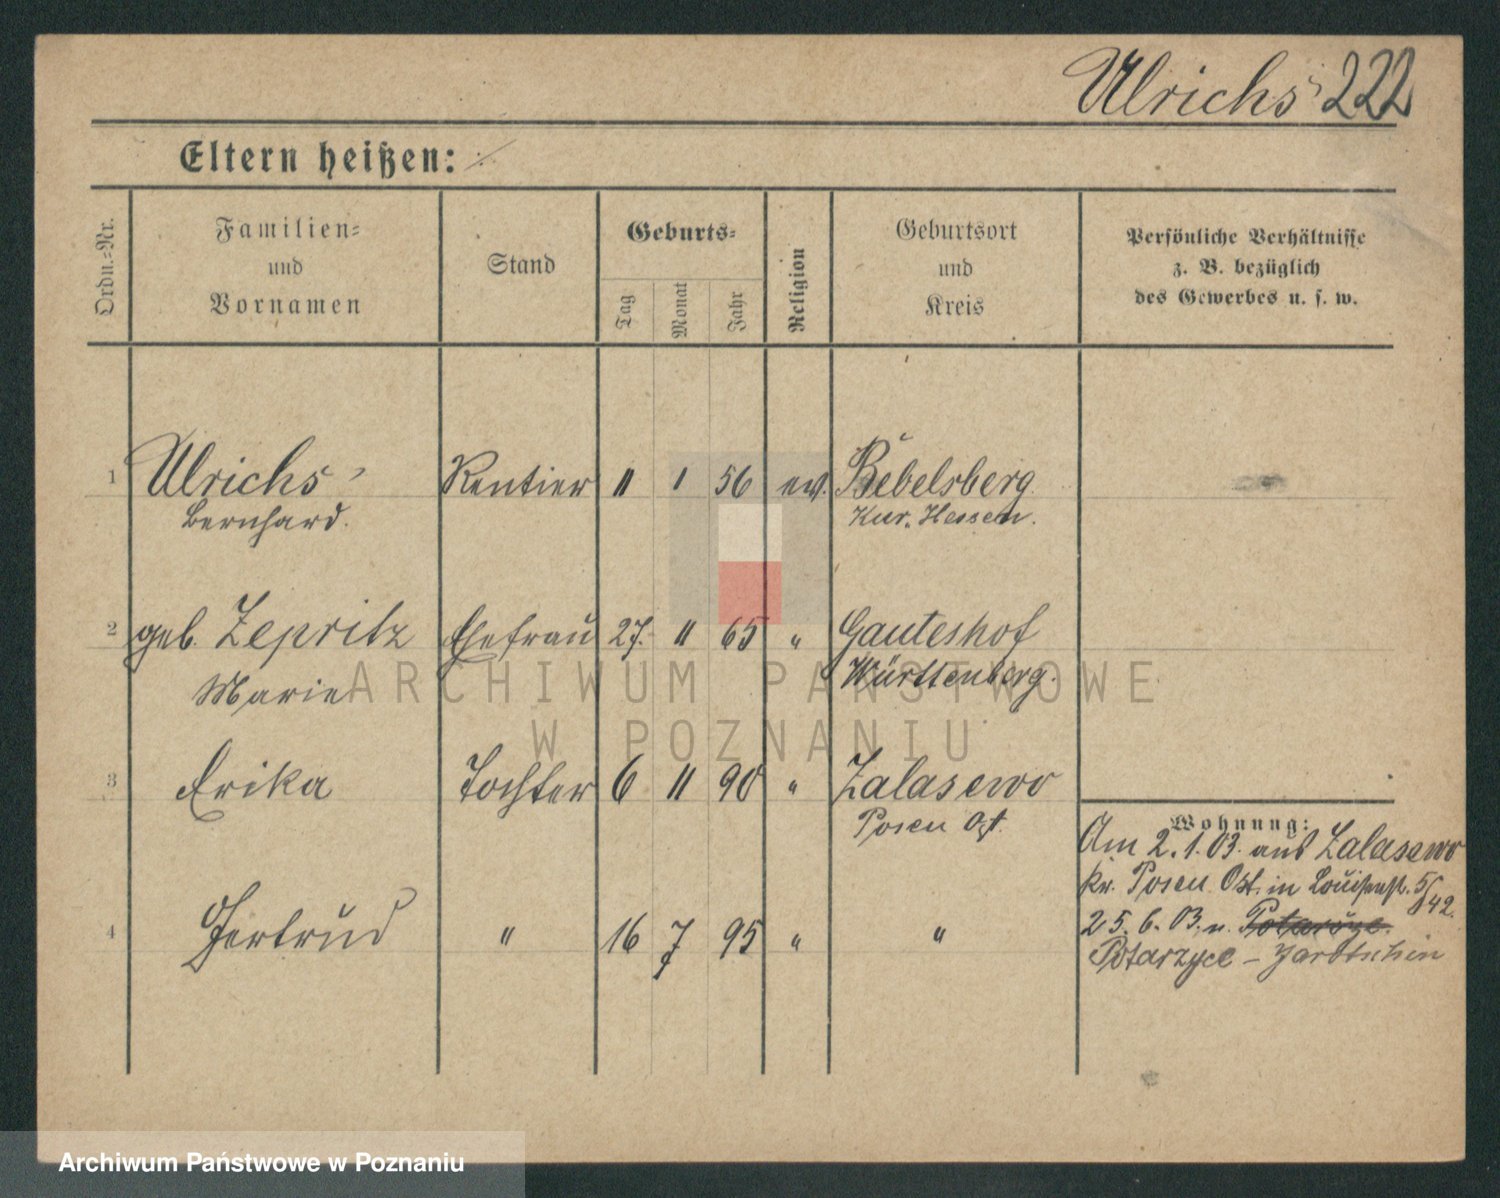 Ulrichs 222
Eltern heißen:
Ordn.=Nr.
Familien=
und
Vornamen
Stand
Geburts=
Tag
Monat
Jahr
Religion
Geburtsort
und
Kreis
Persönliche Verhältnisse
z. B. bezüglich
des Gewerbes u. s. w.
1 Ulrichs Rentier 11 1 56 ev. Bebelsberg
Bernhard. Kur. Hessen.
2 geb. Zepritz Ehefrau 27. 11 65 " Gauteshof
Marie Württenberg.
ARCHIWUM PAŃSTWOWE
W POZNANIU
3 Erika Tochter 6 11 90 " Zalasewo
Posen Ost.
Wohnung:
Am 2.1.03. aus Zalasewo
Kr. Posen Ost. in Louisenst. 5/42.
4 Gertrud " 16 7 95 " "
25.6.03. n. Potarzyce.
Potarzyce – Jarotschin
Archiwum Państwowe w Poznaniu